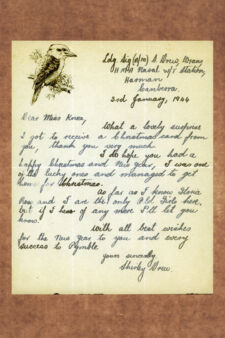 Ldg Sig S. Drew, Wrans
HMA Naval W/T Station,
Harman
Canberra.
3rd January, 1944
Dear Miss Knox,
What a lovely surprise
I got to receive a Christmas card from
you, thank you very much.
I do hope you had a
happy Christmas and New Year, I was one
of the lucky ones and managed to get
home for Christmas.
As far as I know
Rose and I are the only P.L. Girls here,
but if I hear of any more I'll let you
know.
With all best wishes
for the New Year to you and every
success to Pymble.
Yours sincerely
Shirley Drew.